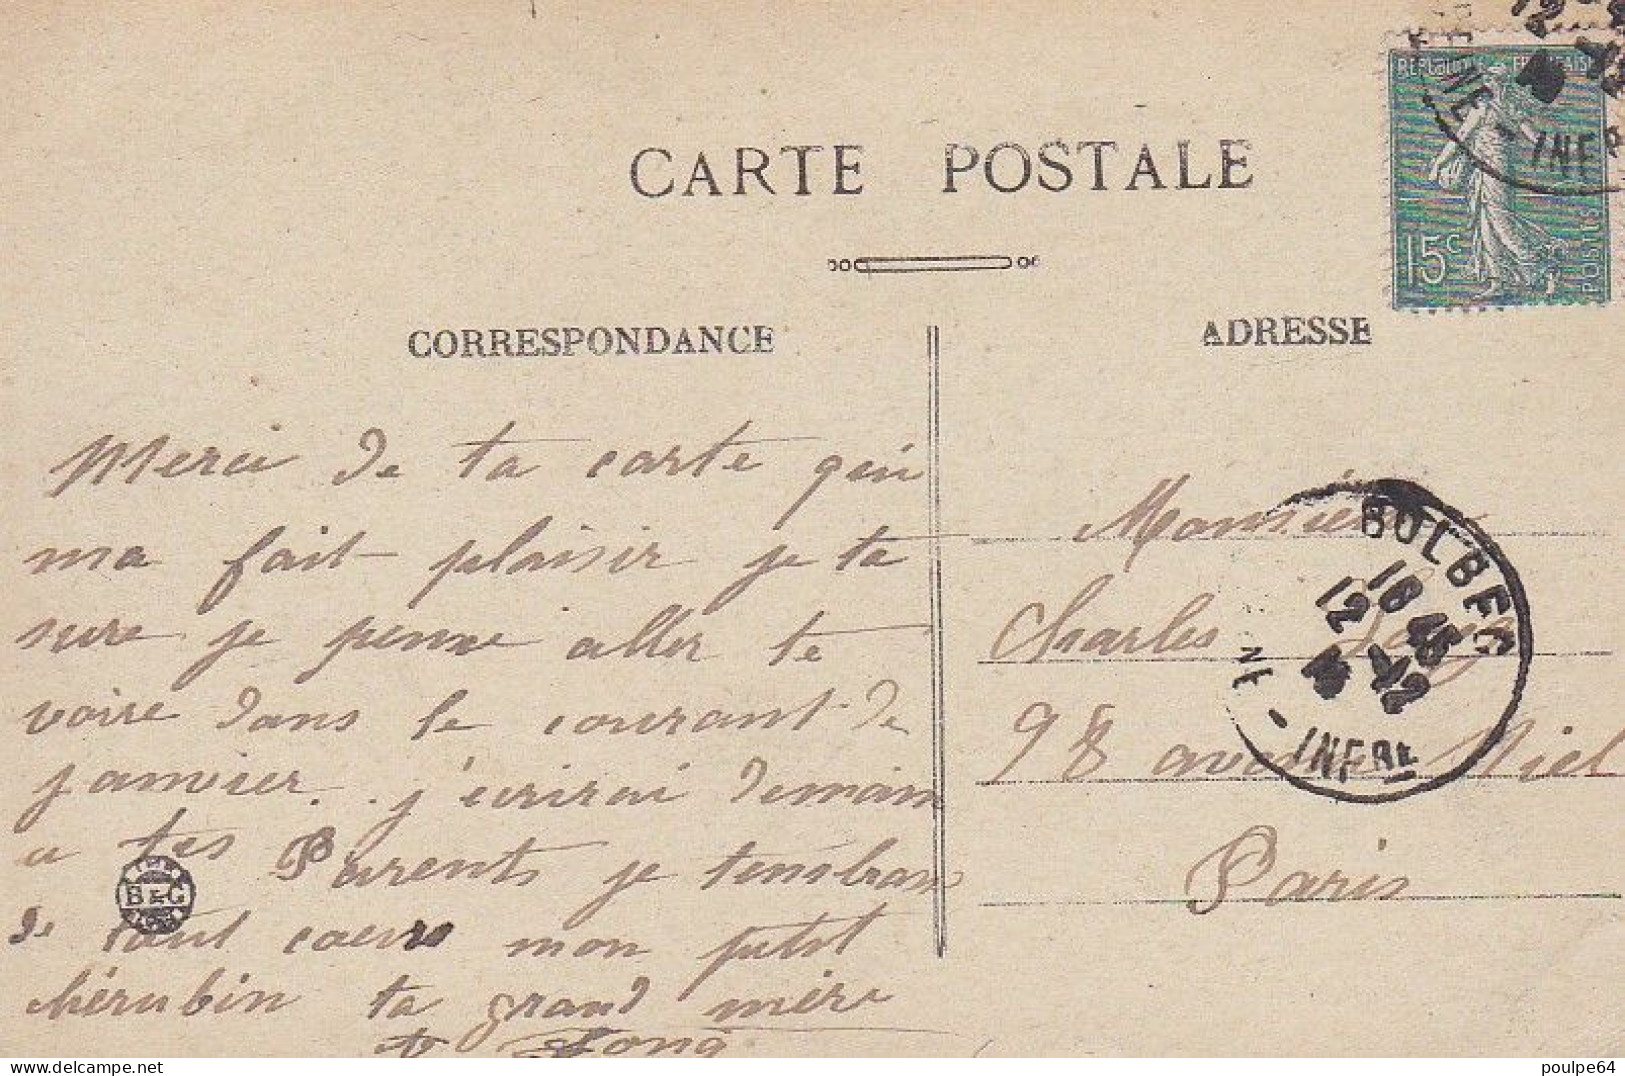 CARTE POSTALE
CORRESPONDANCE
ADRESSE
REPUBLIQUE FRANCAISE
15c
POSTES
12
NE - INFRE
Merci de ta carte qui
ma fait plaisir je ta
sure je pense aller te
voire dans le courant de
janvier.. j'ecrirai demain
a tes Parents je tembrass
de tout coeur mon petit
chérubin ta grand mère
Long
IMP.
B & G
Monsieur
Charles Long
98 avenue Niel
Paris
BOLBEC
18 45
12 - 12
NE - INFRE
© poulpe64